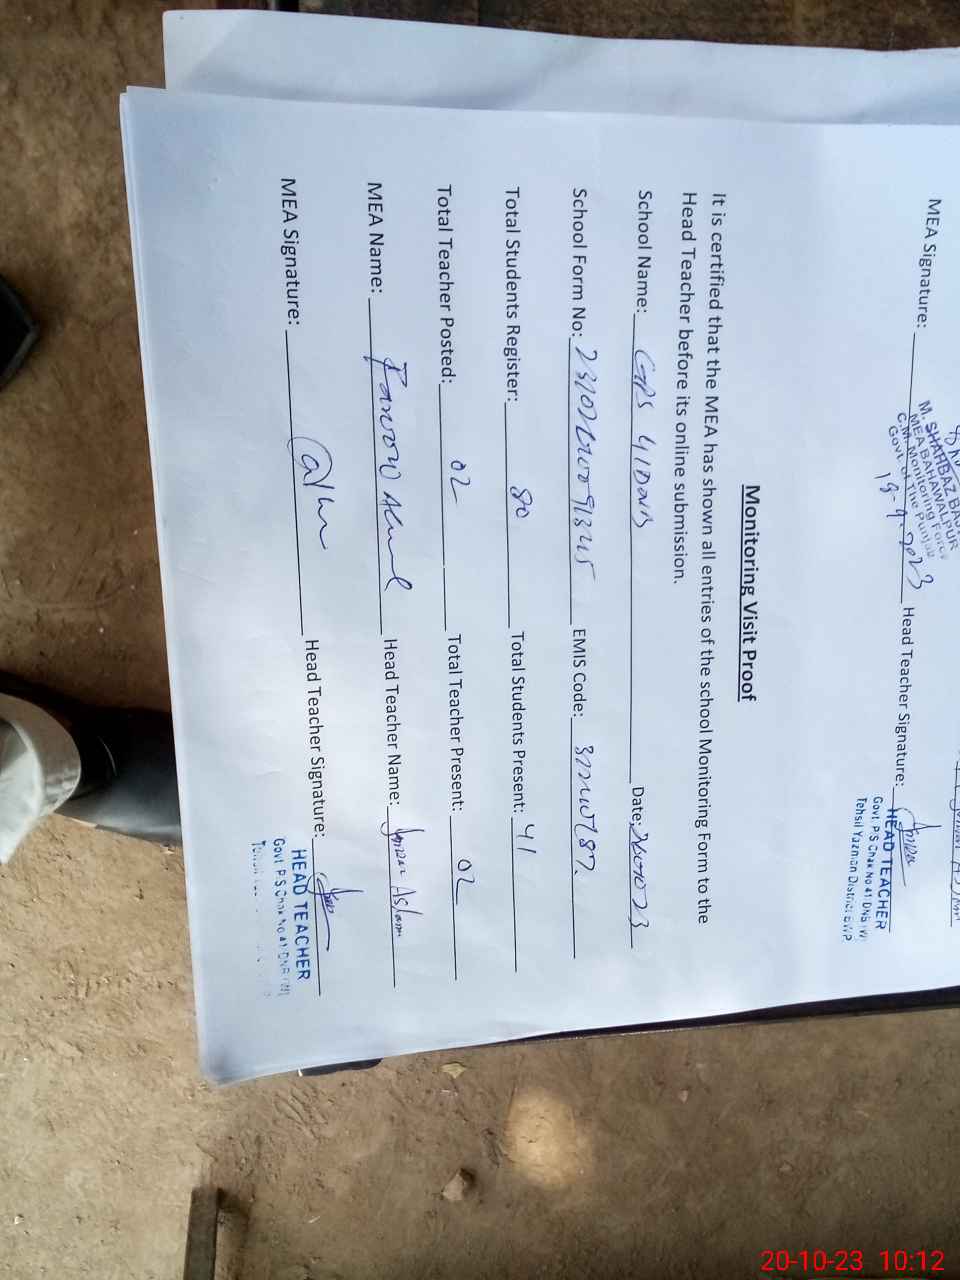 MEA Signature: Head Teacher Signature:
M. SHAHBAZ
MEA BAHAWALPUR
C.M. Monitoring Force
Govt of The Punjab
18-9-2023
HEAD TEACHER
Govt. P/S Chak No 41 DNB (W)
Tehsil Yazman District BWP
Monitoring Visit Proof
It is certified that the MEA has shown all entries of the school Monitoring Form to the
Head Teacher before its online submission.
School Name: GPS 41 DNB Date:
School Form No: EMIS Code:
Total Students Register: 80 Total Students Present: 41
Total Teacher Posted: 02 Total Teacher Present: 02
MEA Name: Head Teacher Name: Aslam
MEA Signature: Head Teacher Signature:
HEAD TEACHER
Govt P/S Chak No 41 DNB (W)
20-10-23 10:12